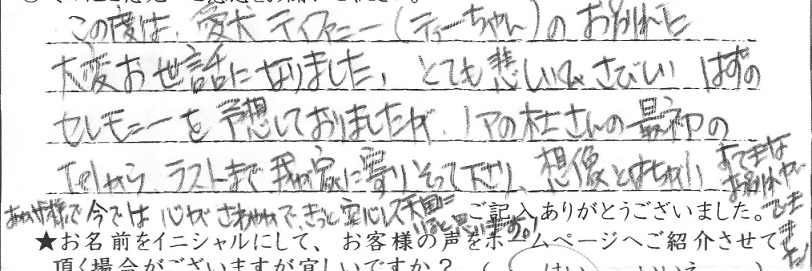 この度は、愛犬ティファニー(ティーちゃん)のお別れに
大変お世話になりました。とても悲しい、さびしいはずの
セレモニーを予想しておりましたが、ノアの杜さんの最初の
Telから、ラストまで我が家に寄りそって下さり、想像とはちがい
すてきな
お別れがで
きま
した。
おかげ様で今では心がさわやかで、きっと安心して天国に
いると思います。
ご記入ありがとうございました。
★お名前をイニシャルにして、お客様の声をホームページへご紹介させて
頂く場合がございますが宜しいですか? ( はい ・ いいえ